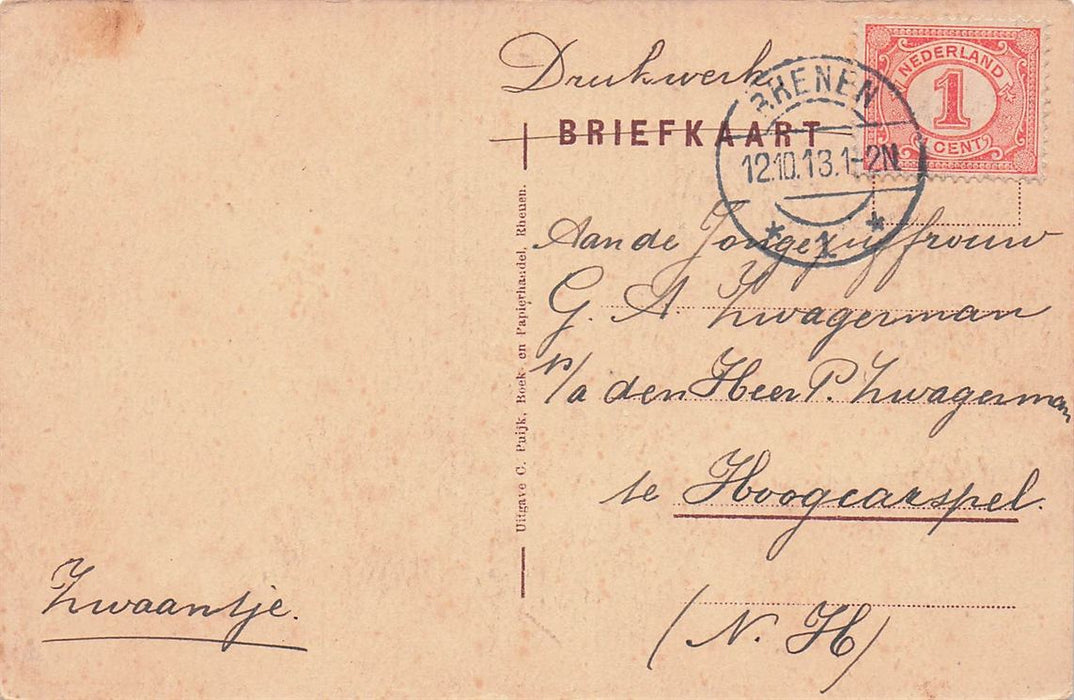 Drukwerk
BRIEFKAART
NEDERLAND
1
1 CENT
RHENEN
12.10.13.1-2N
* 1 *
Aan de Jongejuffrouw
G. A. Zwagerman
p/a den Heer P. Zwagerman
te Hoogcarspel.
(N. H)
Uitgave C. Puijk, Boek- en Papierhandel, Rhenen.
Zwaantje.